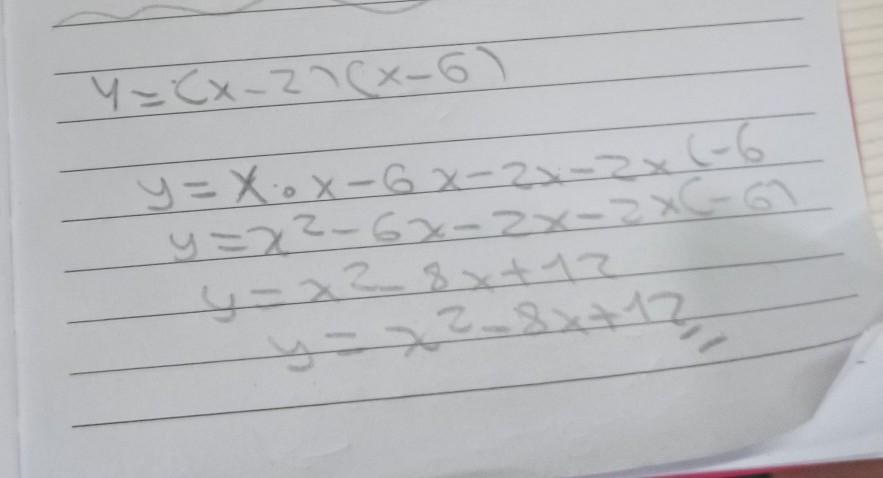 y=(x-2)(x-6)
y=x·x-6x-2x-2x(-6
y=x²-6x-2x-2x(-6)
y=x²-8x+12
y=x²-8x+12,,